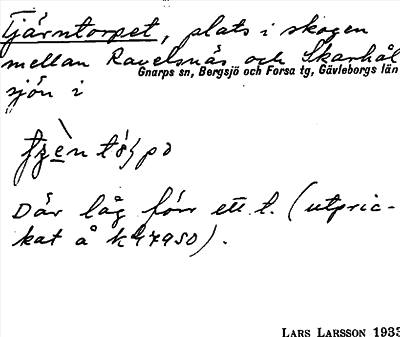 Tjärntorpet, plats i skogen
mellan Ravelsnäs och Skarhål
Gnarps sn, Bergsjö och Forsa tg, Gävleborgs län
sjön i
Där låg förr ett t. (utpric-
kat å k 47950).
LARS LARSSON 1933